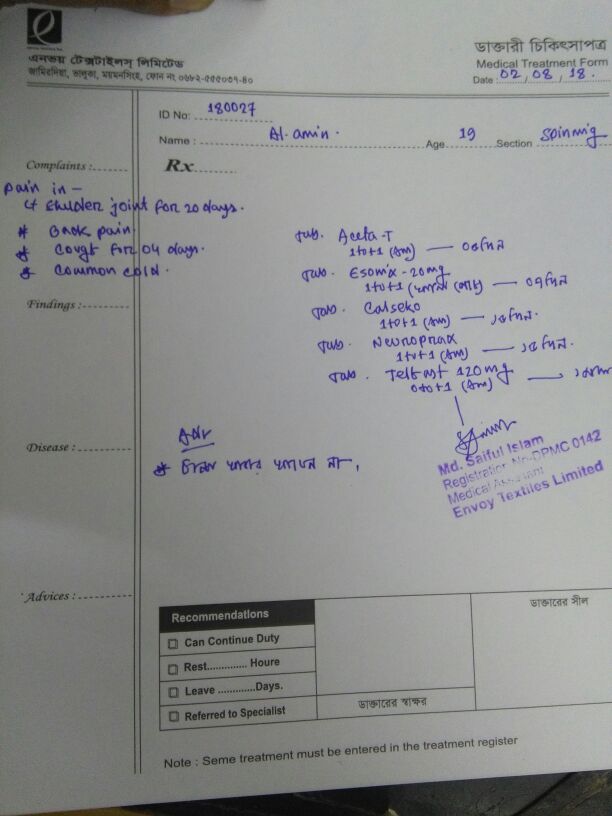 এনভয় টেক্সটাইলস্ লিমিটেড
জামিরদিয়া, ভালুকা, ময়মনসিংহ, ফোন নং ০৬৮২-৫৫৫০৩৭-৪০
ডাক্তারী চিকিৎসাপত্র
Medical Treatment Form
Date 02/08/18.
ID No: 180027
Name: Al-amin. Age 19 Section Spinnig
Complaints:
Rx
Pain in -
joint for 20 days.
* Back pain
* for 04 days.
* Common cold.
Tab. Aceta-T
1+0+1 ০৫দিন
Tab. Esomix-20mg
1+0+1 ০৭দিন
Tab. Calseko
1+0+1 ১৫দিন.
Tab. Neuropraax
1+0+1 ১৫দিন.
Tab. Telfast 120mg
0+0+1
Findings:
Adv
Disease:
* খাবার না,
Md. Saiful Islam
Registration No-DPMC 0142
Medical Assistant
Envoy Textiles Limited
Advices:
Recommendations
Can Continue Duty
Rest.............. Houre
Leave ............Days.
Referred to Specialist
ডাক্তারের স্বাক্ষর
ডাক্তারের সীল
Note : Seme treatment must be entered in the treatment register